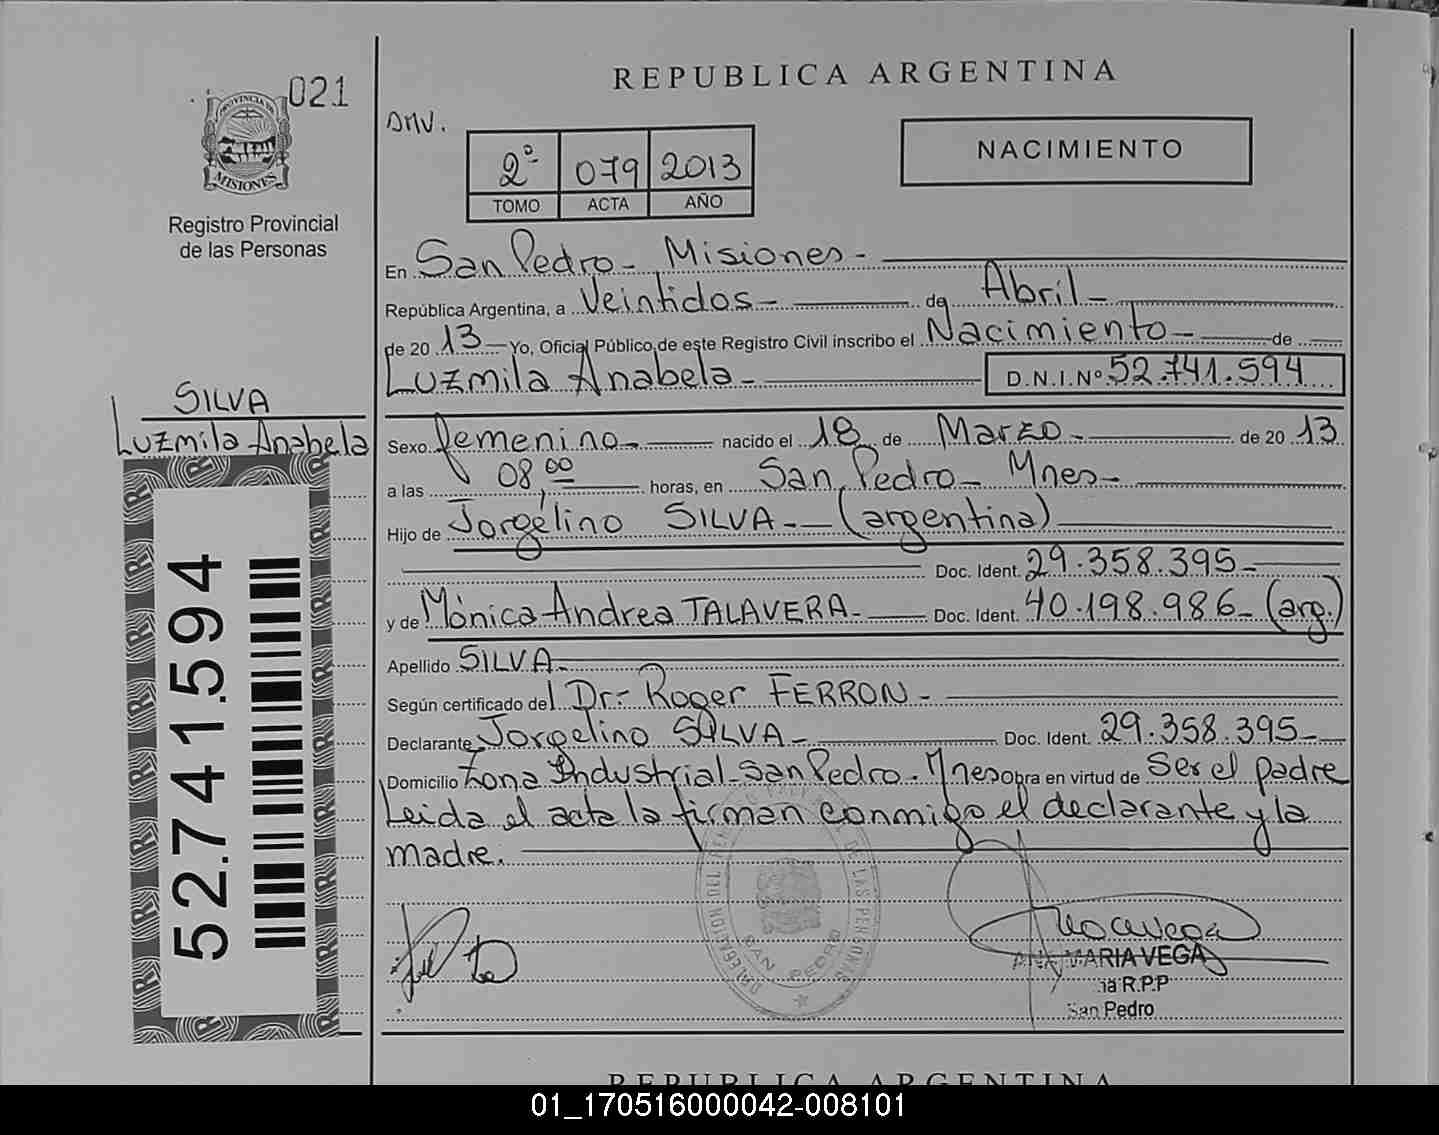 021
PROVINCIA DE
MISIONES
Registro Provincial
de las Personas
SILVA
Luzmila Anabela
52.741.594
REPUBLICA ARGENTINA
DMV.
2º 079 2013
TOMO ACTA AÑO
NACIMIENTO
En San Pedro - Misiones -
República Argentina, a Veintidos - de Abril -
de 20 13 Yo, Oficial Público de este Registro Civil inscribo el Nacimiento - de
Luzmila Anabela - D.N.I.Nº 52.741.594
Sexo femenino - nacido el 18 de Marzo - de 20 13
a las 08,00 horas, en San Pedro - Mnes -
Hijo de Jorgelino SILVA - (argentina)
Doc. Ident. 29.358.395 -
y de Mónica Andrea TALAVERA - Doc. Ident. 40.198.986 - (arg.)
Apellido SILVA -
Según certificado del Dr.- Roger FERRON -
Declarante Jorgelino SILVA - Doc. Ident. 29.358.395 -
Domicilio Zona Industrial - San Pedro - Mnes obra en virtud de Ser el padre
Leida el acta la firman conmigo el declarante y la
madre.
DE LAS PERSONAS
SAN PEDRO
ANA MARIA VEGA
R.P.P
San Pedro
REPUBLICA ARGENTINA
01_170516000042-008101